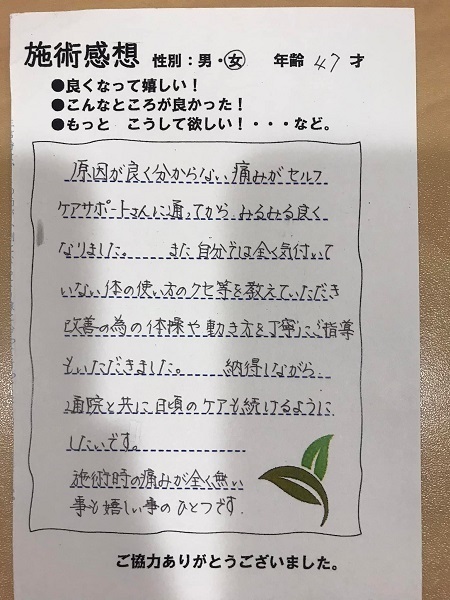 施術感想 性別：男・女 年齢 47 才
●良くなって嬉しい！
●こんなところが良かった！
●もっと こうして欲しい！・・・など。
原因が良く分からない痛みがセルフ
ケアサポートさんに通ってから みるみる良く
なりました。 また 自分では全く気付いて
いない体の使い方のクセ等を教えていただき
改善の為の体操や動き方を丁寧にご指導
もいただきました。 納得しながら
通院と共に日頃のケアも続けるように
したいです。
施術時の痛みが全く無い
事も嬉しい事のひとつです.
ご協力ありがとうございました。